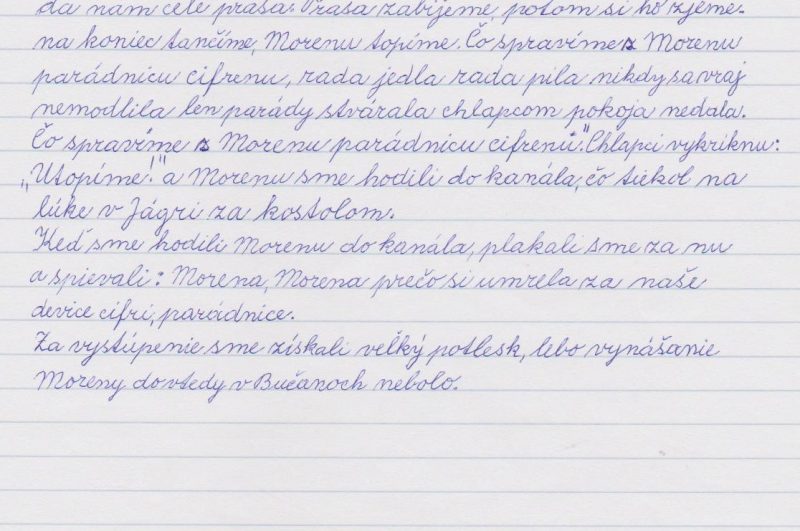 da nám celé prasa. Prasa zabijeme, potom si ho zjeme.
na koniec tančíme, Morenu topíme. Čo spravíme s Morenu
parádnicu cifrenu, rada jedla rada pila nikdy sa vraj
nemodlila len parády stvárala chlapcom pokoja nedala.
Čo spravíme s Morenu parádnicu cifrenú." Chlapci vykriknu:
„Utopíme!" a Morenu sme hodili do kanála, čo tiekol na
lúke v Jágri za kostolom.
Keď sme hodili Morenu do kanála, plakali sme za nu
a spievali: Morena, Morena prečo si umrela za naše
device cifri, parádnice.
Za vystúpenie sme získali veľký potlesk, lebo vynášanie
Moreny dovtedy v Bučanoch nebolo.